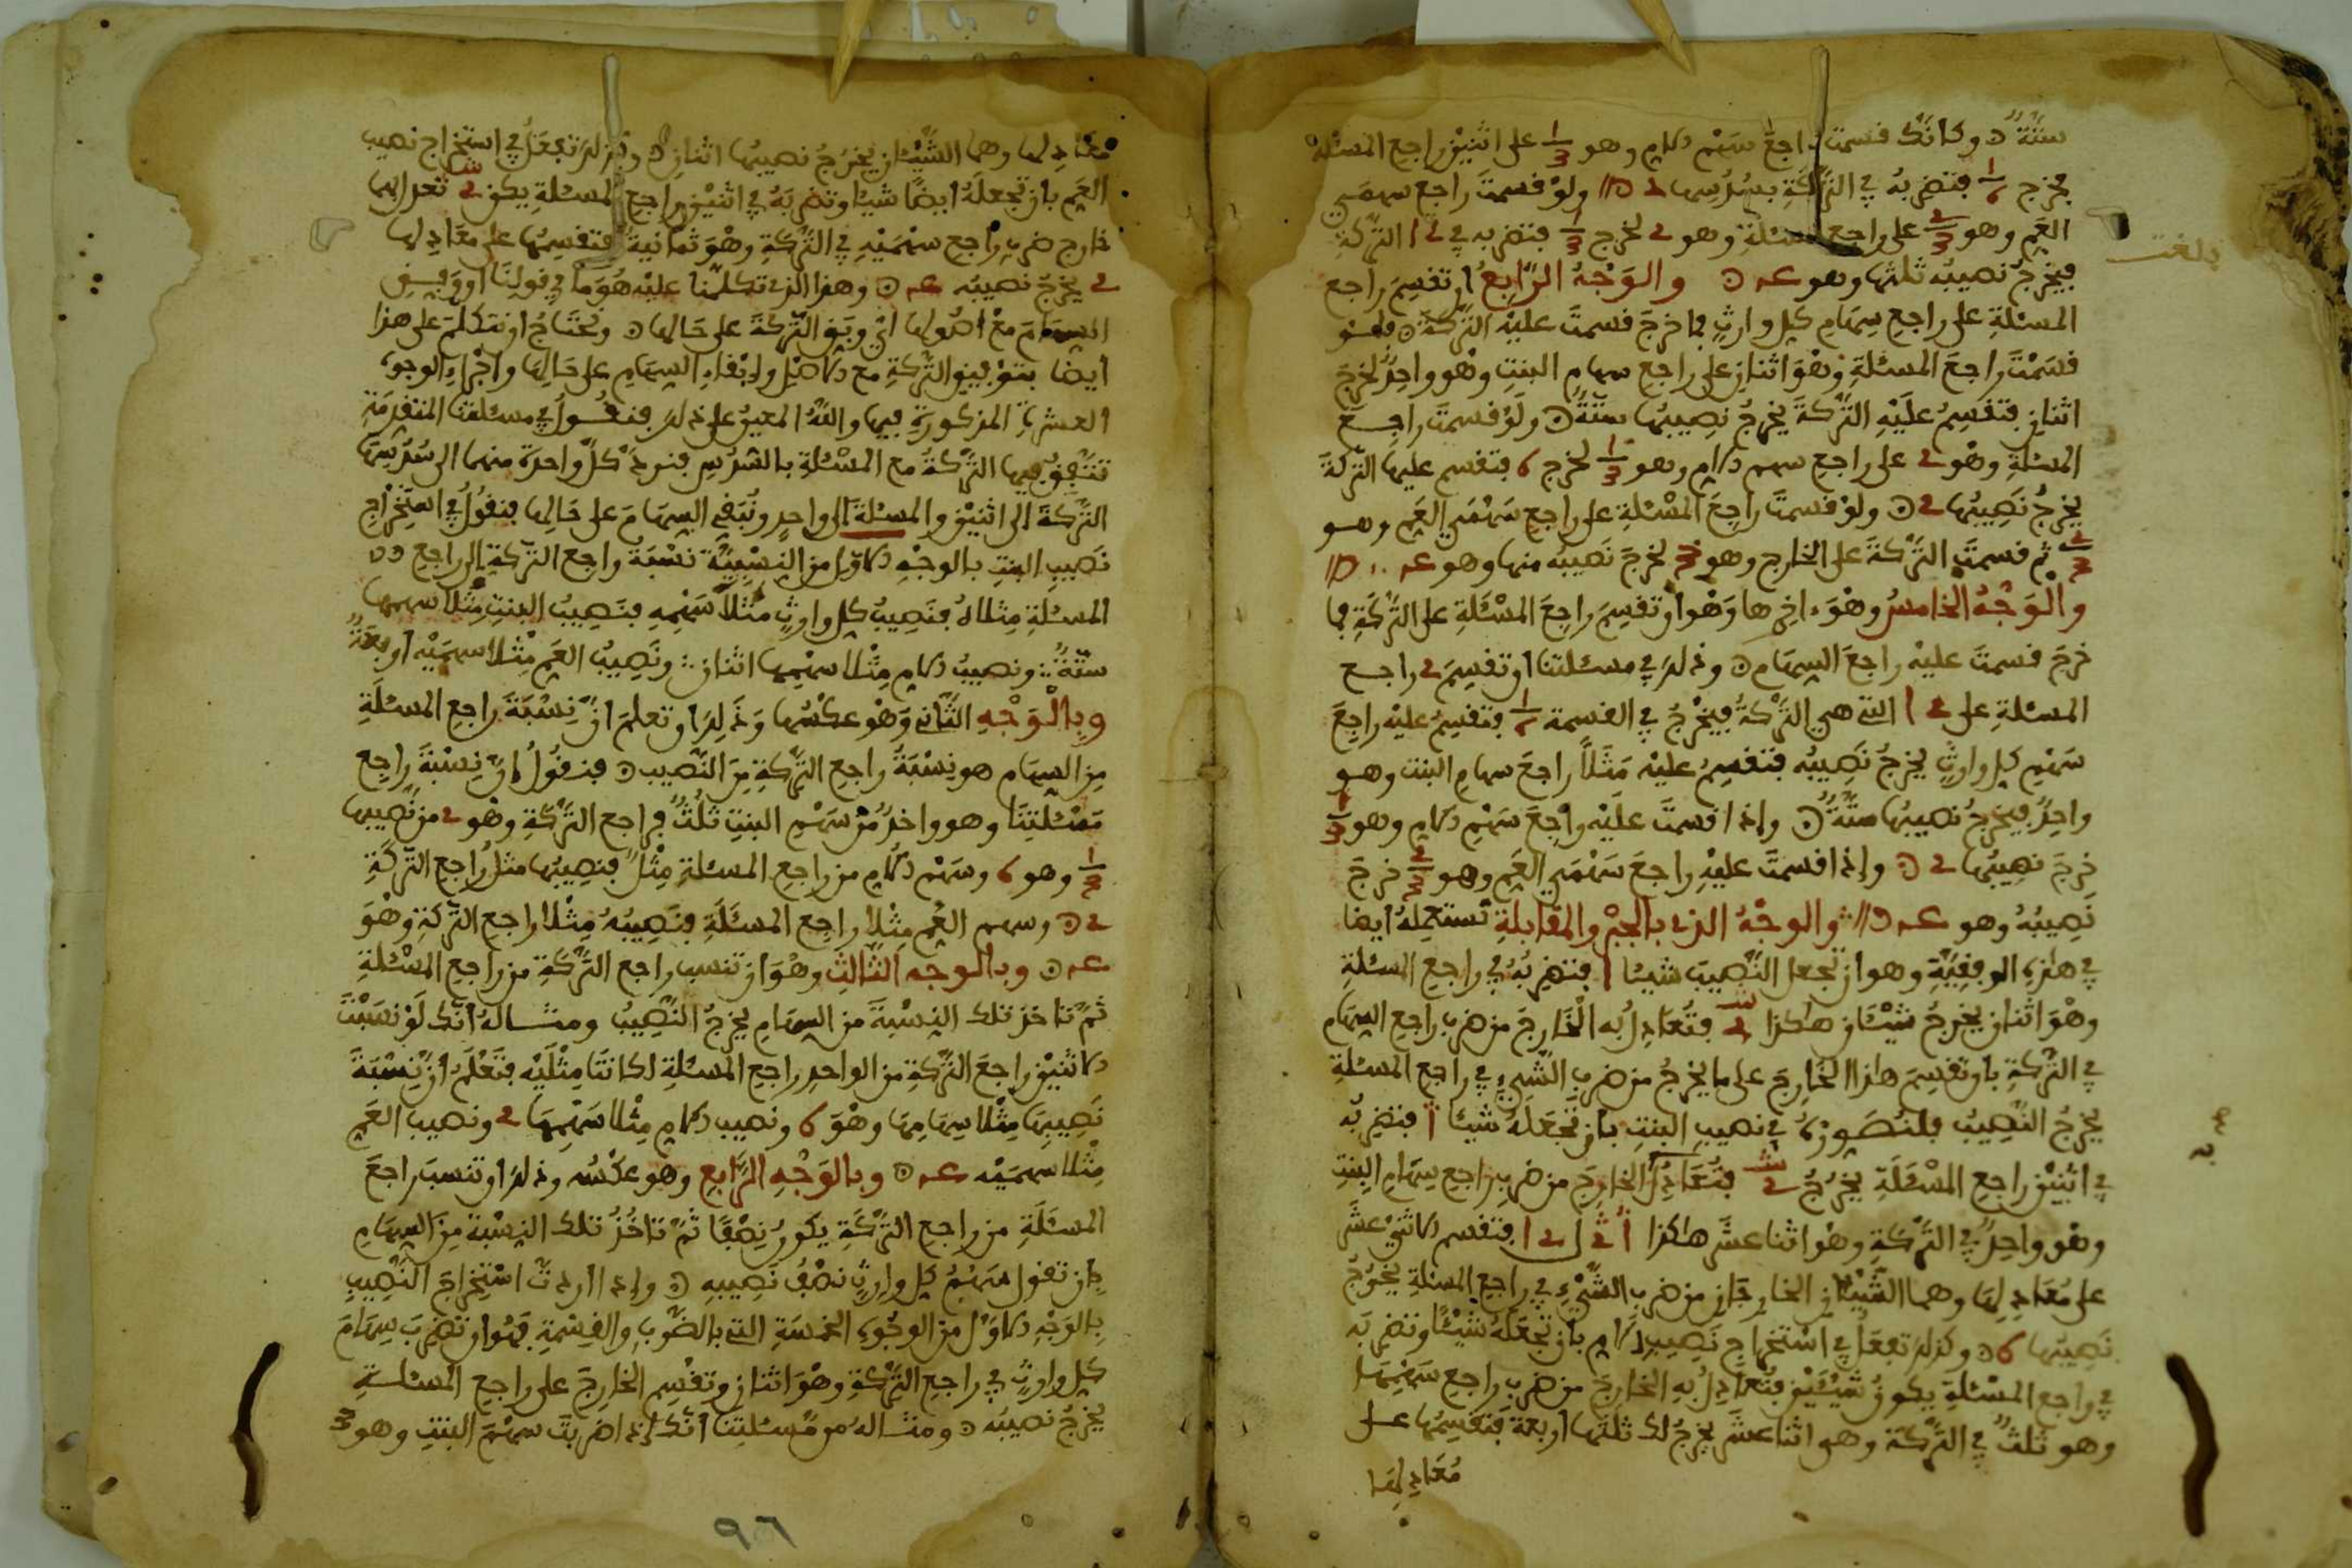 ستة وكأنك قسمت راجع سهم الام وهو 1/3 على اثنين راجع المسئلة
يخرج 1/6 فتضربه في التركة بسدسها 2 ولو قسمت راجع سهمي
العم وهو 2/3 على راجع المسئلة وهو 2 لخرج 1/3 فتضربه في 12 التركة
فيخرج نصيبه ثلثها وهو 4 والوجه الرابع ان تقسم راجع
المسئلة على راجع سهام كل وارث فما خرج قسمت عليه التركة فلو
قسمت راجع المسئلة وهو اثنان على راجع سهام البنت وهو واحد لخرج
اثنان فتقسم عليه التركة يخرج نصيبها ستة ولو قسمت راجع
المسئلة وهو 2 على راجع سهم الام وهو 1/3 لخرج 6 فتقسم عليها التركة
يخرج نصيبها 2 ولو قسمت راجع المسئلة على راجع سهمي العم وهو
2/3 ثم قسمت التركة على الخارج وهو 3 لخرج نصيبه منها وهو 4
والوجه الخامس وهو ءاخرها وهو ان تقسم راجع المسئلة على التركة فما
خرج قسمت عليه راجع السهام وذلك في مسئلتنا ان تقسم 2 راجع
المسئلة على 12 التي هي التركة فيخرج في القسمة 1/6 فتقسم عليه راجع
سهم كل وارث يخرج نصيبه فتقسم عليه مثلا راجع سهام البنت وهو
واحد فيخرج نصيبها ستة وإذا قسمت عليه راجع سهم الام وهو 1/3
خرج نصيبها 2 وإذا قسمت عليه راجع سهمي العم وهو 2/3 خرج
نصيبه وهو 4 والوجه الذي بالجبر والمقابلة تستعمله أيضا
في هذه الوفقية وهو ان تجعل النصيب شيئا 1 فتضربه في راجع المسئلة
وهو اثنان يخرج شيئان هكذا 2 فتعادل به الخارج من ضرب راجع السهام
في التركة بان تقسم هذا الخارج على ما يخرج من ضرب الشيء في راجع المسئلة
يخرج النصيب فلنصوره في نصيب البنت بان تجعله شيئا 1 فتضربه
في اثنين راجع المسئلة يخرج 2 فتعادل الخارج من ضرب راجع سهام البنت
وهو واحد في التركة وهو اثنا عشر هكذا فتقسم الاثني عشر
على معادلها وهما الشيئان الخارجان من ضرب الشيء في راجع المسئلة يخرج
نصيبها 6 وكذلك تفعل في استخراج نصيب الام بان تجعله شيئا وتضربه
في راجع المسئلة يكون شيئين فتعادل به الخارج من ضرب راجع سهمها
وهو ثلث في التركة وهو اثنا عشر يخرج لك ثلثها أربعة فتقسمها على
معادلها
بلغت
معادلها وهما الشيئان يخرج نصيبها اثنان وكذلك تفعل في استخراج نصيب
العم بان تجعله ايضا شيئا وتضربه في اثنين راجع المسئلة يكن 2 تعد لها
خارج ضرب راجع سهميه في التركة وهو ثمانية فتقسمها على معادلها
2 يخرج نصيبه 4 وهذا الذي تكلمنا عليه هو ما في قولنا او وفق
السهام مع اصولها أي وبق التركة على حالها ونحتاج ان نتكلم على هذا
أيضا بتوفيق التركة مع الاصل وإبقاء السهام على حالها وإجراء الوجوه
العشرة المذكورة فيها والله المعين على ذلك فنقول في مسئلتنا المتقدمة
تتفق فيها التركة مع المسئلة بالسدس فنرد كل واحدة منهما الى سدسها
التركة الى اثنين والمسئلة الى واحد ونبقي السهام على حالها فنقول في استخراج
نصيب البنت بالوجه الاول من النسبية نسبة راجع التركة الى راجع
المسئلة مثلاه فنصيب كل وارث مثلا سهمه فنصيب البنت مثلا سهمها
ستة ونصيب الام مثلا سهمها اثنان ونصيب العم مثلا سهميه أربعة
وبالوجه الثاني وهو عكسها وذلك ان تعلم ان نسبة راجع المسئلة
من السهام هو نسبة راجع التركة من النصيب فنقول ان نسبة راجع
مسئلتنا وهو واحد من سهم البنت ثلث فراجع التركة وهو 2 من نصيبها
1/3 وهو 6 وسهم الام من راجع المسئلة مثل فنصيبها مثل راجع التركة
2 وسهم العم مثلا راجع المسئلة فنصيبه مثلا راجع التركة وهو
4 وبالوجه الثالث وهو ان تنسب راجع التركة من راجع المسئلة
ثم تاخذ تلك النسبة من السهام يخرج النصيب ومثاله أنك لو نسبت
الاثنين راجع التركة من الواحد راجع المسئلة لكانتا مثليه فتعلم ان نسبة
نصيبها مثلا سهامها وهو 6 ونصيب الام مثلا سهمها 2 ونصيب العم
مثلا سهميه 4 وبالوجه الرابع وهو عكسه وذلك ان تنسب راجع
المسئلة من راجع التركة يكون نصفا ثم تاخذ تلك النسبة من السهام
بان تقول سهم كل وارث نصف نصيبه وإذا اردت استخراج النصيب
بالوجه الاول من الوجوه الخمسة التي بالضرب والقسمة فهو ان تضرب سهام
كل وارث في راجع التركة وهو اثنان وتقسم الخارج على راجع المسئلة
يخرج نصيبه ومثاله من مسئلتنا أنك إذا ضربت سهم البنت وهو 3
٩٦